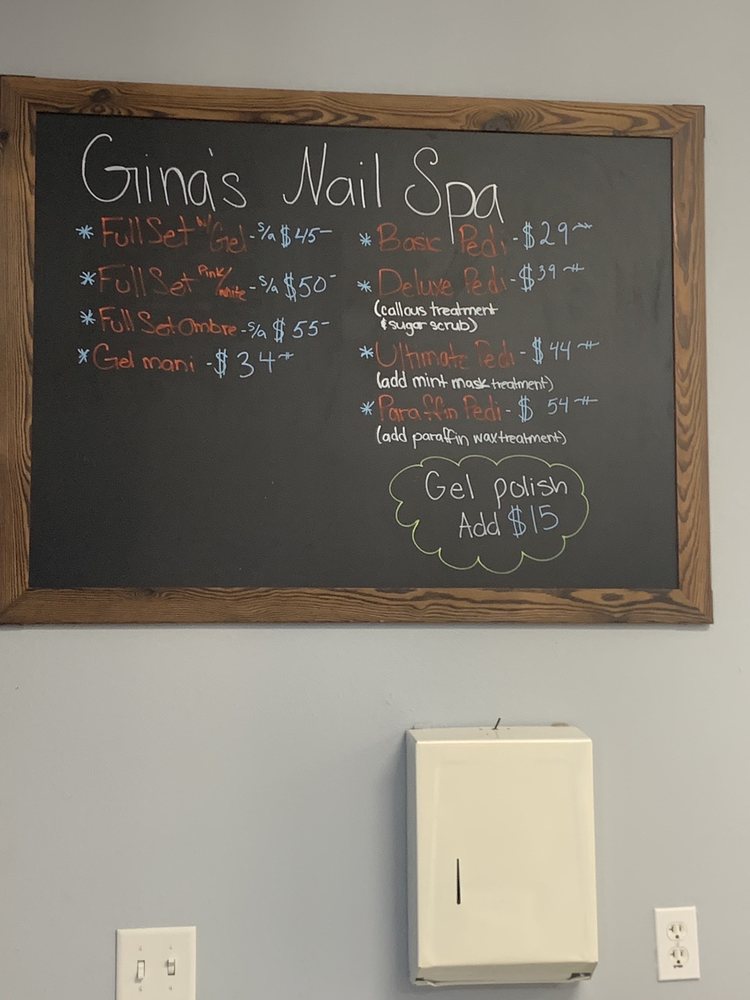 Gina's Nail Spa
* Full Set w/ Gel - s/a $45-
* Full Set Pink/white - s/a $50-
* Full Set Ombre - s/a $55-
* Gel mani - $34
* Basic Pedi - $29
* Deluxe Pedi - $39
(callous treatment
& sugar scrub)
* Ultimate Pedi - $44
(add mint mask treatment)
* Paraffin Pedi - $54
(add paraffin wax treatment)
Gel polish
Add $15